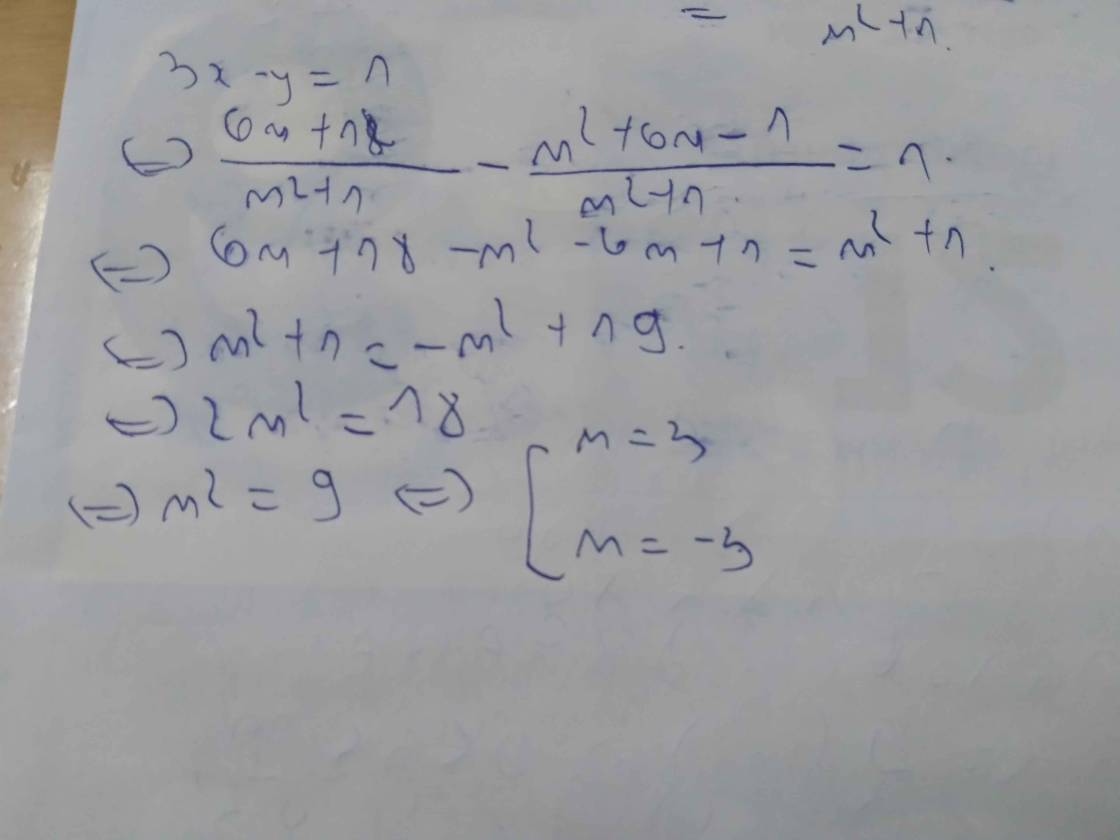 = m²+1.
3x -y = 1
⇔ (6m+18)/(m²+1) - (m²+6m-1)/(m²+1) = 1.
⇔ 6m+18 -m² -6m+1 = m²+1.
⇔ m²+1 = -m²+19.
⇔ 2m² = 18
⇔ m² = 9 ⇔ [ m = 3
m = -3